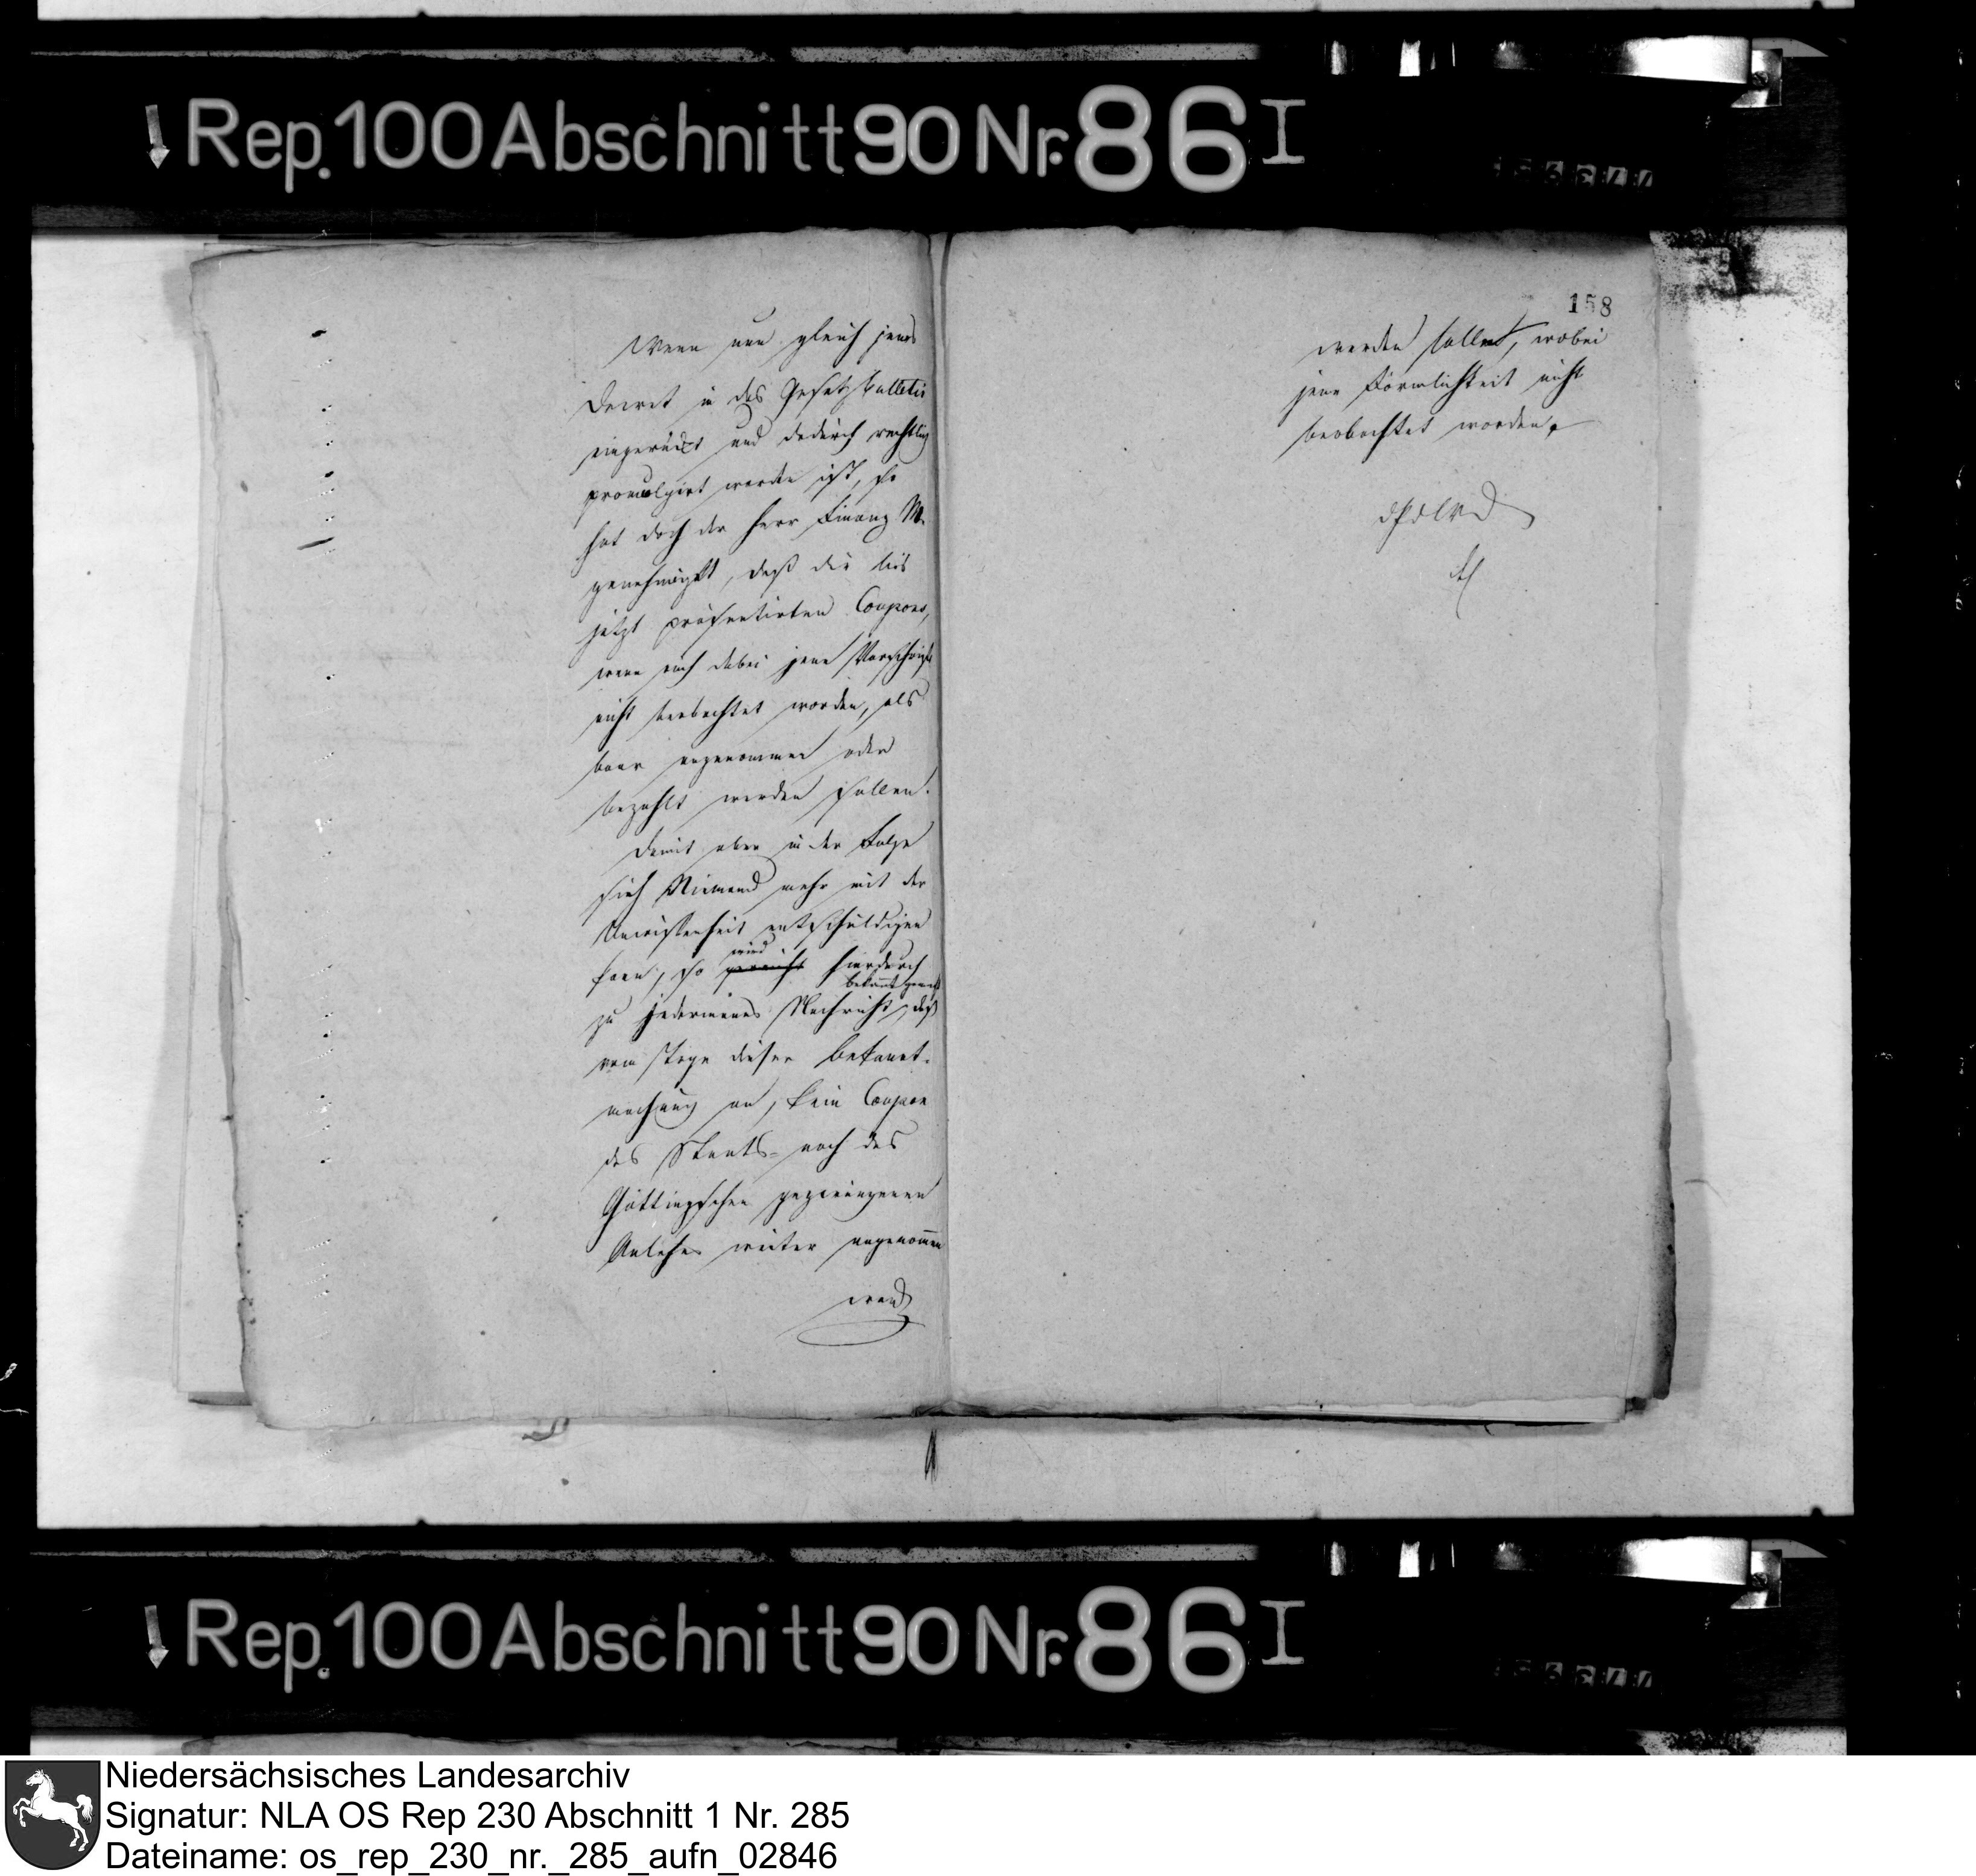 Rep. 100 Abschnitt 90 Nr. 86 I
Wenn nun gleich jenes
Decret in das Gesetz bulletin
eingerückt und dadurch rechtlich
promulgirt worden ist, so
hat doch der Herr Finanz M.
genehmigt, daß die bis
jetzt präsentirten Coupons,
wenn auch dabei jene Vorschrift
nicht beobachtet worden, als
baar angenommen oder
bezahlt werden sollen.
Damit aber in der Folge
sich Niemand mehr mit der
Unwissenheit entschuldigen
wird
kann, so gereicht hierdurch
bekannt gemacht
zu jedermanns Nachricht, daß
vom Tage dieser Bekannt-
machung an, kein Coupon
des Staats- noch des
Göttingschen gezwungenen
Anlehns weiter angenomen
werd
158
werden soll, wobei
jene Förmlichkeit nicht
beobachtet worden.
Rep. 100 Abschnitt 90 Nr. 86 I
Niedersächsisches Landesarchiv
Signatur: NLA OS Rep 230 Abschnitt 1 Nr. 285
Dateiname: os_rep_230_nr._285_aufn_02846